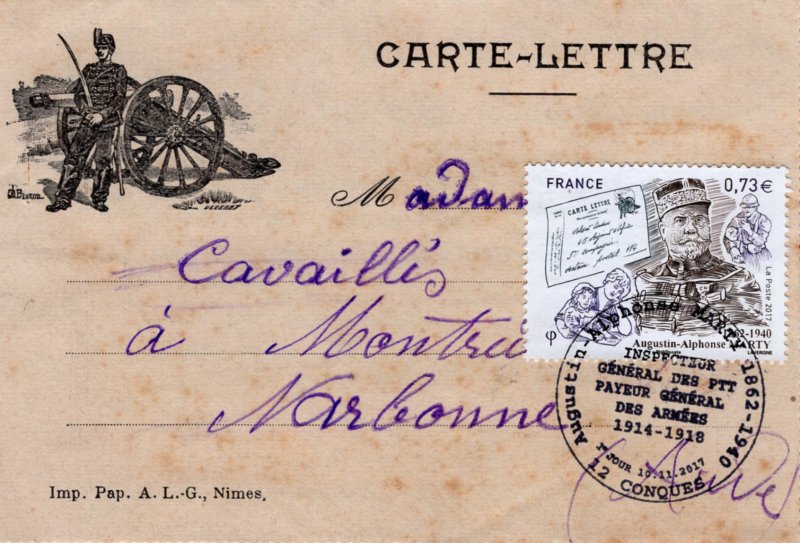 CARTE-LETTRE
Madam
Cavaillès
à Montré
Narbonne
Imp. Pap. A. L.-G., Nimes.
FRANCE 0,73€
CARTE LETTRE
La Poste 2017
φ
1862-1940
Augustin-Alphonse MARTY
LAVERGNE
Augustin-Alphonse MARTY 1862-1940
INSPECTEUR
GÉNÉRAL DES PTT
PAYEUR GÉNÉRAL
DES ARMÉES
1914-1918
1er JOUR 10.11.2017
12 CONQUES